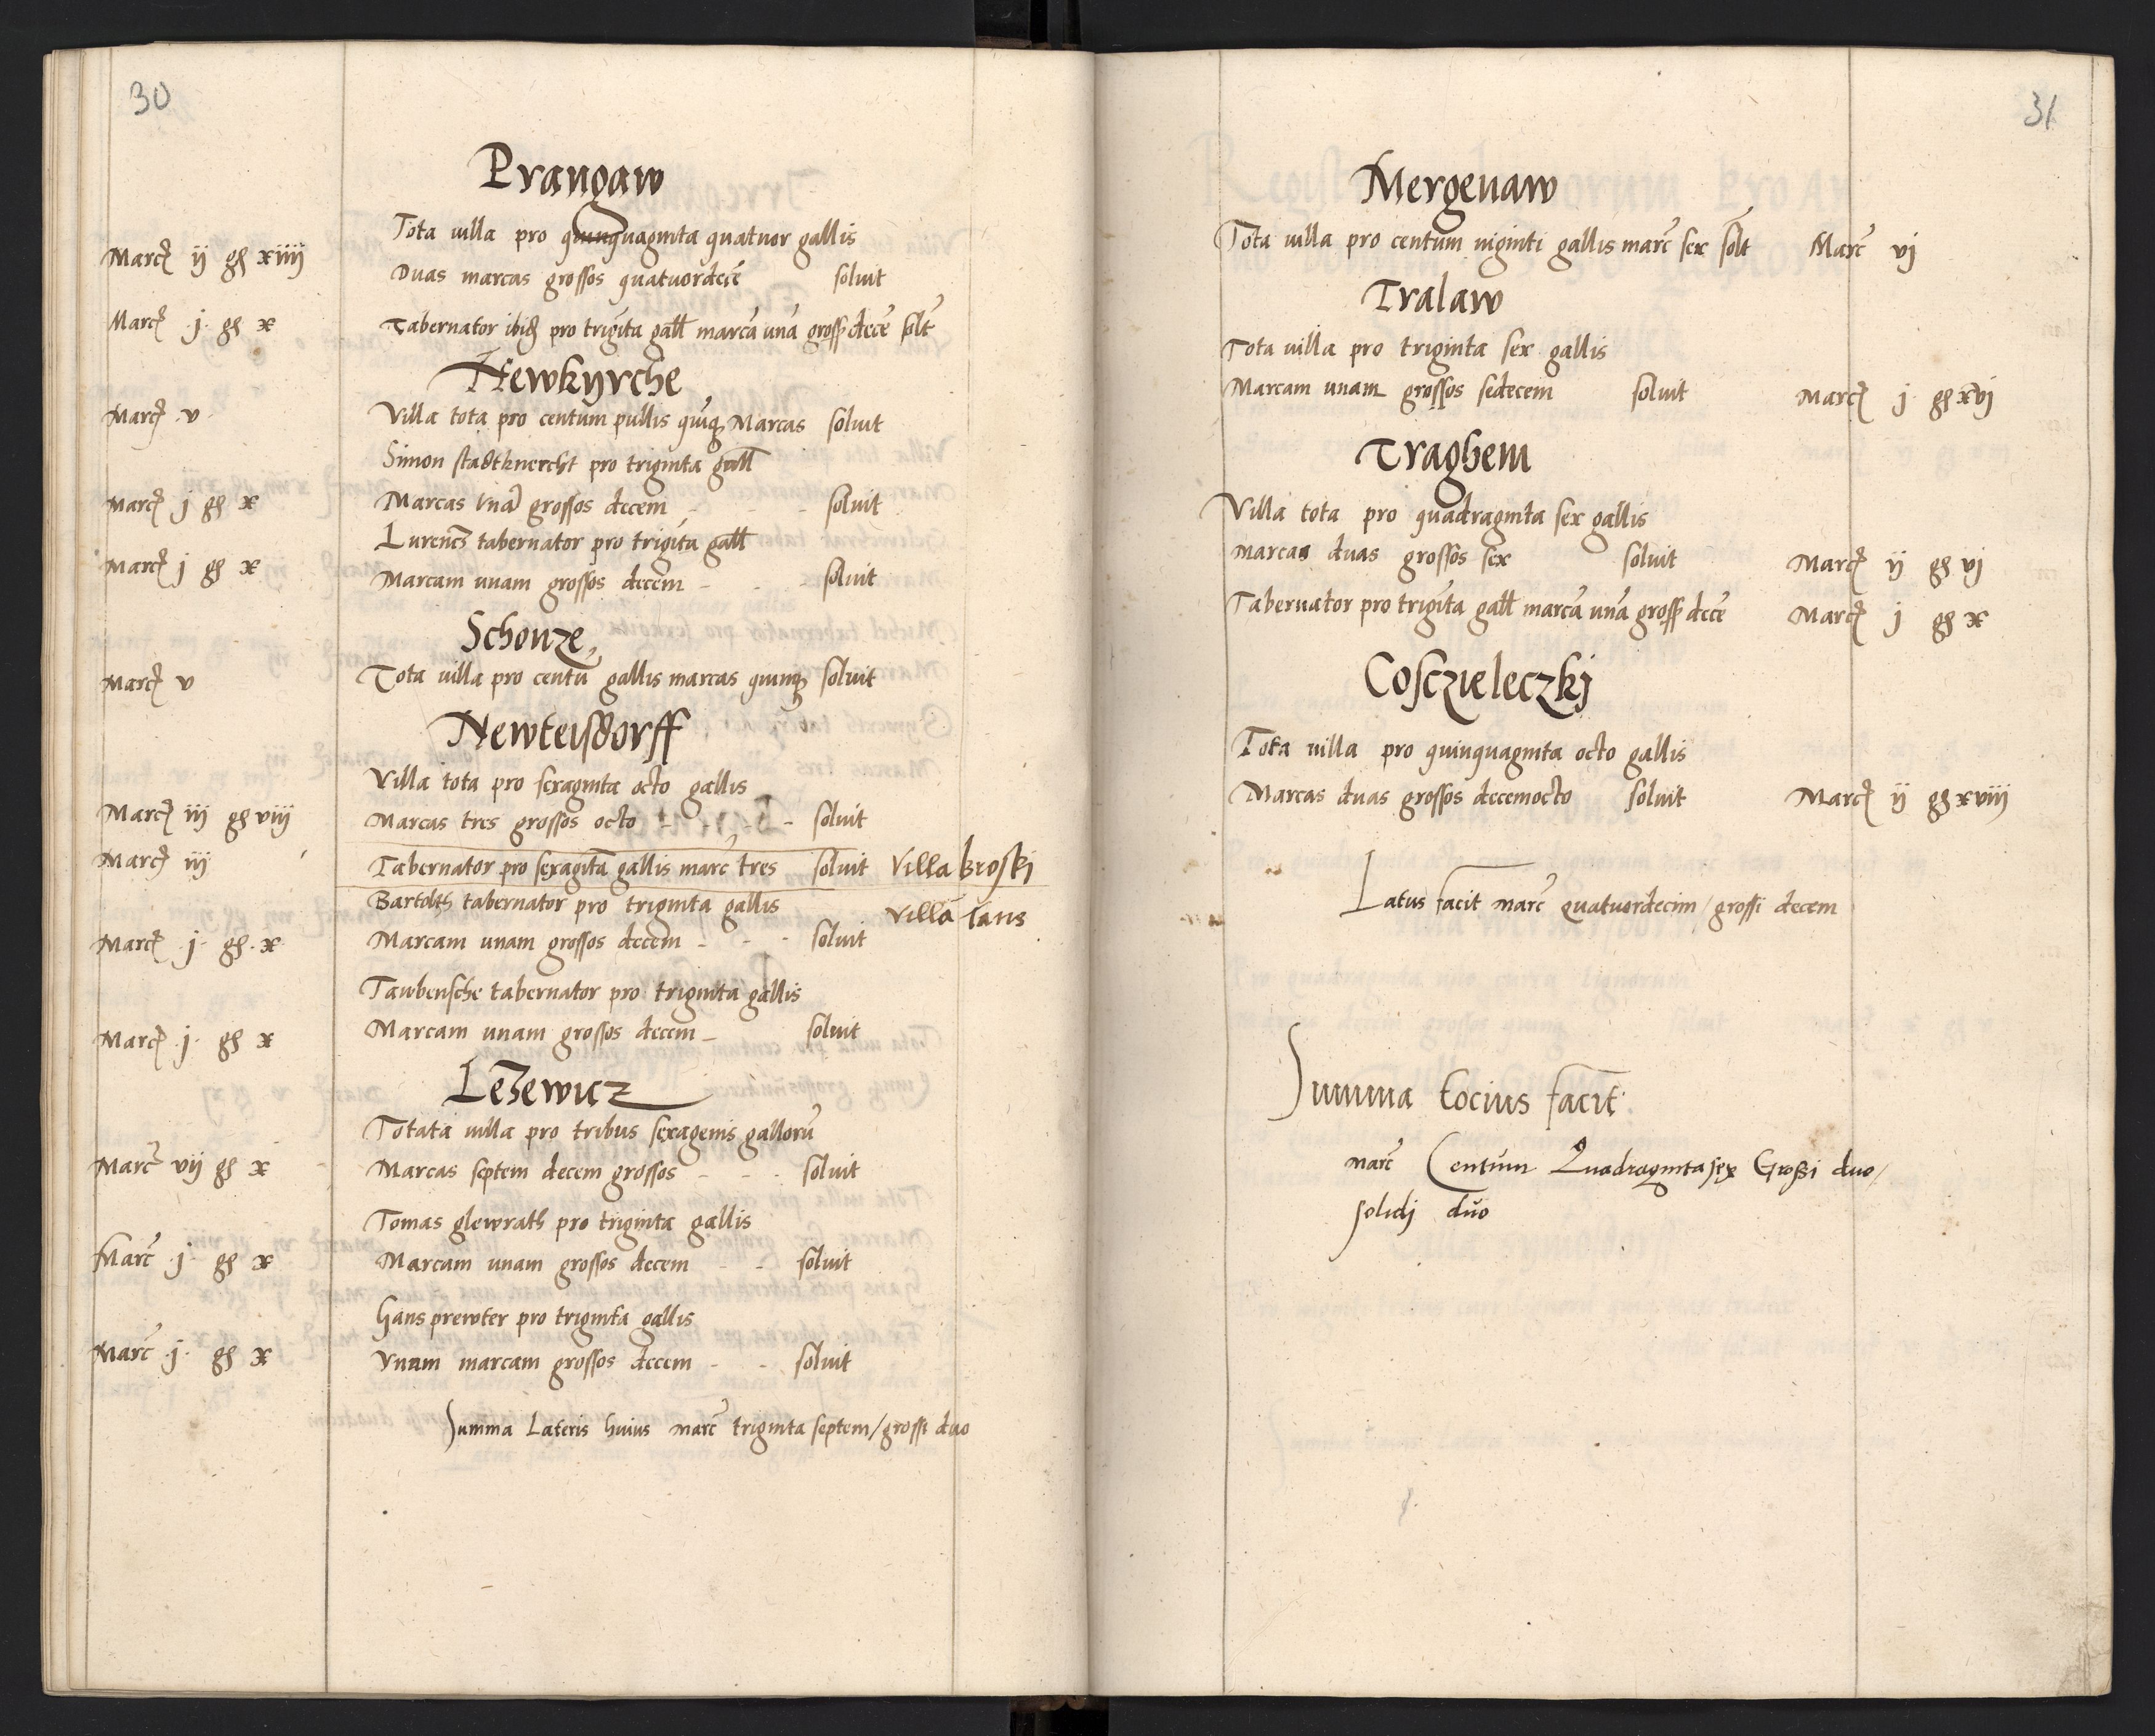 30
Prangaw
Tota villa pro quinquaginta quatuor gallis
Marcꝭ ij gß xiiij Duas marcas grossos quatuordecē soluit
Marcꝭ .j. gß x Tabernator ibidē pro trigīta gall marcā unā gross decē solt
Newkyrche
Marcꝭ .v. Villa tota pro centum pullis quīqꝫ Marcas soluit
Simon stadtknercht pro triginta gall
Marcꝭ j gß x Marcas vnā grossos decem - - - soluit
Lurencꝭ tabernator pro trigīta gall
Marcꝭ j gß x Marcam unam grossos decem - - - soluit
Schonze,
Marcꝭ v Tota villa pro centū gallis marcas quinqꝫ soluit
Newteisdorff
Villa tota pro sexaginta octo gallis
Marcꝭ iij gß viij Marcas tres grossos octo - - - - soluit
Marcꝭ iij Tabernator pro sexagītā gallis marc̄ tres soluit Villa kroski
Bartolth tabernator pro triginta gallis Villa Ians
Marcꝭ .j. gß .x. Marcam unam grossos decem - - - soluit
Tawbensche tabernator pro triginta gallis
Marcꝭ .j. gß x Marcam unam grossos decem - soluit
Lezewicz
Totata villa pro tribus sexagenis gallorū
Marc̄ vij gß x - Marcas septem decem grossos - - - soluit
Tomas glewrath pro triginta gallis
Marc̄ .j. gß x Marcam unam grossos decem - - soluit
Hans prewter pro triginta gallis
Marc̄ .j. gß x Vnam marcam grossos decem - - soluit
Summa Lateris huius marc̄ triginta septem / grossi duo
31
Mergenaw
Tota villa pro centum viginti gallis marc̄ sex solt Marc̄ vj
Tralaw
Tota villa pro triginta sex gallis
Marcam unam grossos sedecem soluit Marcꝭ j gß xvj
Traghem
Villa tota pro quadraginta sex gallis
marcas duas grossos sex soluit Marcꝭ ij gß vj
Tabernator pro trigīta gall marcā unā gross decē Marcꝭ j gß x
Cosczieleczkj
Tota villa pro quinquaginta octo gallis
Marcas duas grossos decemocto soluit Marcꝭ ij gß xviij
Latus facit marc̄ quatuordecim / grossi decem
Summa tocius facit
marc̄ Centum Quadraginta sex Grossi duo /
solidj duo